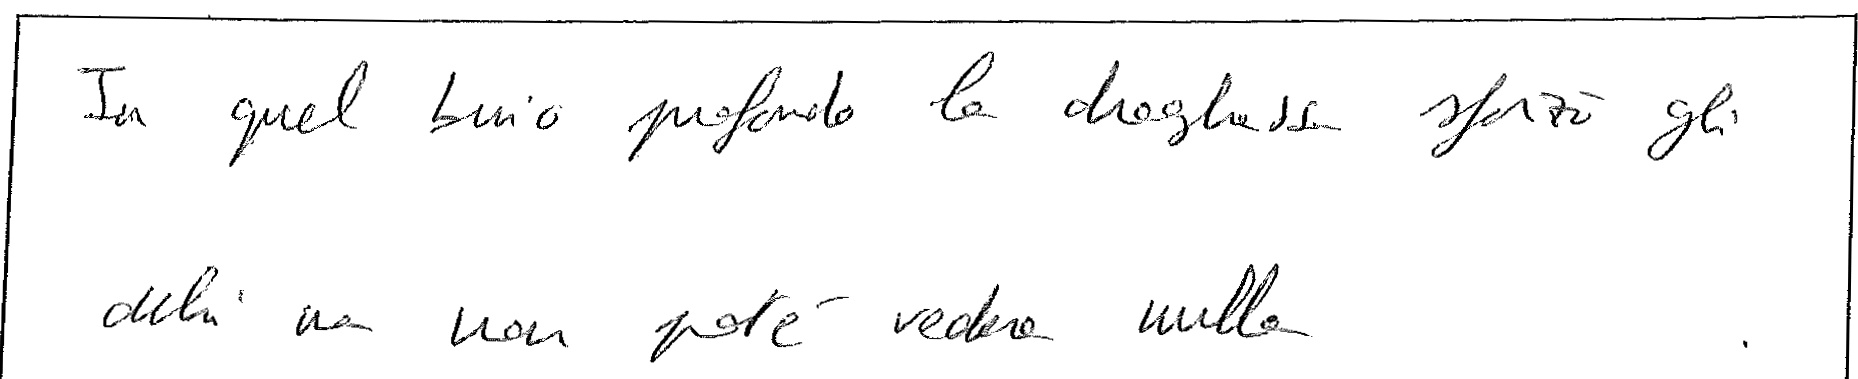 In quel buio profondo la draghessa sforzò gli
ma non poté vedere nulla .